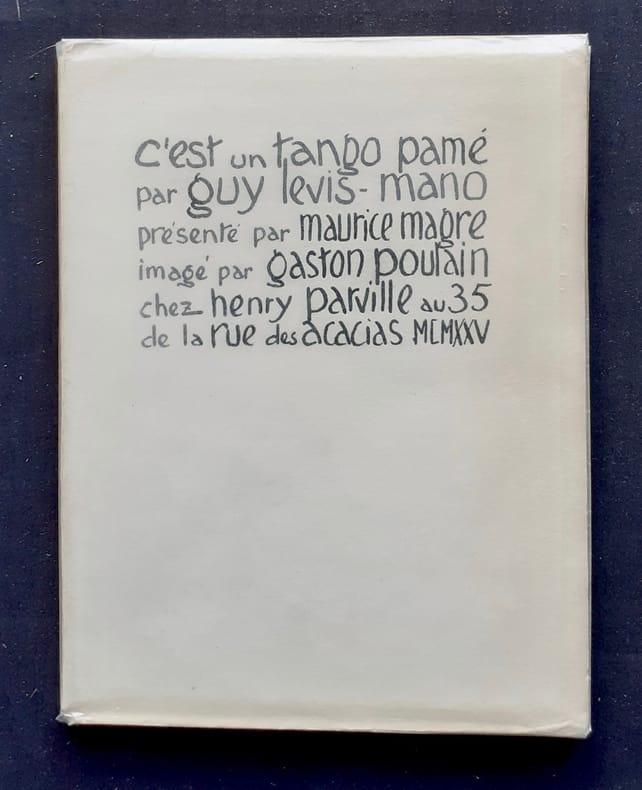 c'est un tango pamé
par guy levis-mano
présenté par maurice magre
imagé par gaston poulain
chez henry parville au 35
de la rue des acacias MCMXXV